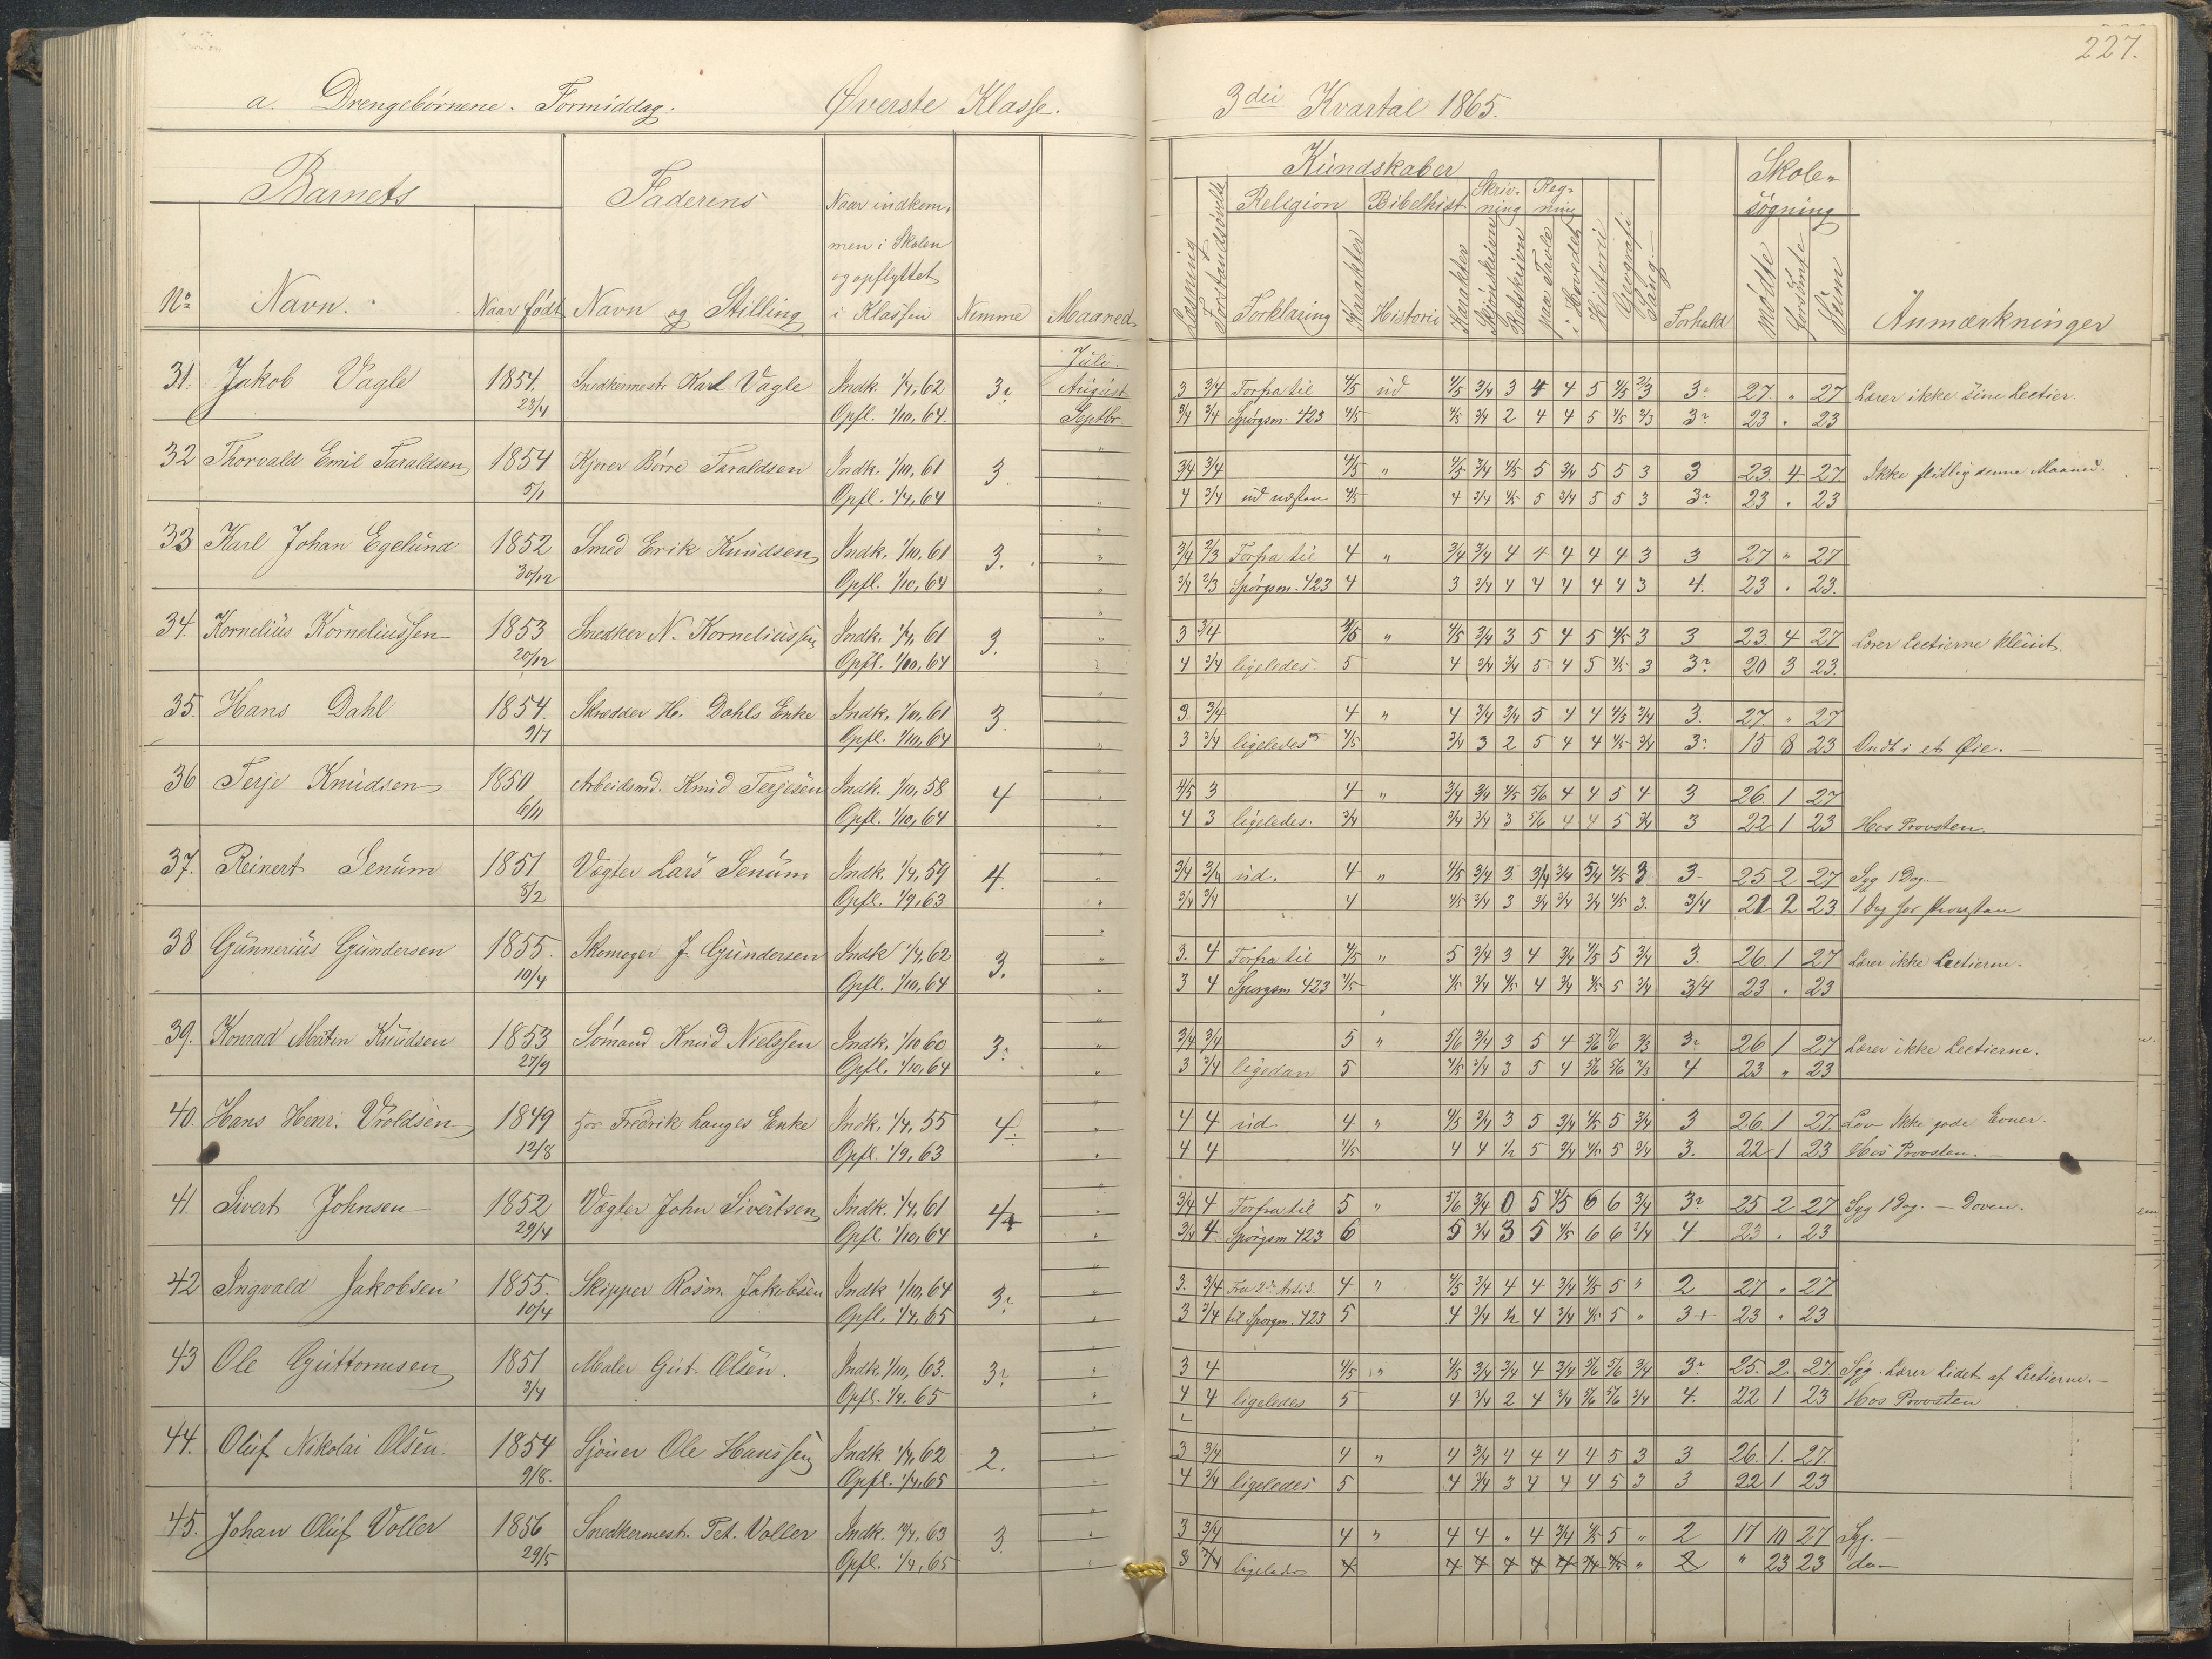 227.
a. Drengebørnene. Formiddag. Øverste Klasse. 3die Kvartal 1865.
Barnets Faderens Naar indkom- Kundskaber Skole-
men i Skolen Religion Bibelhist. Skriv- Reg- søgning
og opflyttet ning ning
No Navn. Naar født Navn og Stilling i Klassen Nemme Maaned Læsning Forstandsøvelse Forklaring Karakter Historie Karakter Skjønskrivn Retskrivn paa Tavle i Hovedet Historie Geografi Sang Forhold mødte forsømte Sum Anmærkninger
Juli.
31. Jakob Vagle 1854. Snedkermestr. Karl Vagle Indk. 1/4, 62 3? August 3 3/4 Forfra til 4/5 ud 4/5 3/4 3 4 4 5 4/5 2/3 3? 27. " 27 Lærer ikke sine Lectier.
23/4 Opfl. 1/10, 64. Septbr. 3/4 3/4 Spørgsm. 423 4/5 4/5 3/4 2 4 4 5 4/5 2/3 3? 23 " 23
32 Thorvald Emil Taraldsen 1854 Kjører Børre Taraldsen Indk. 1/10, 61 3. 3/4 3/4 4/5 " 4/5 3/4 4/5 5 3/4 5 5 3 3 23. 4. 27. Ikke flittig denne Maaned.
5/1 Opfl. 1/4, 64 " 4 3/4 ud næsten 4/5 4 3/4 4/5 5 3/4 5 5 3 3? 23 " 23
33 Karl Johan Egelund 1852 Smed Erik Knudsen Indk. 1/10, 61 3. " 3/4 2/3 Forfra til 4 " 3/4 3/4 4 4 4 4 4 3 3 27 " 27
30/12 Opfl. 1/10, 64 " 3/4 2/3 Spørgsm. 423 4 3 3/4 4 4 4 4 4 3 4. 23 " 23.
34. Kornelius Korneliussen 1853 Snedker N. Korneliussen Indk. 1/4, 61 3. " 3 3/4 4/5 " 4/5 3/4 3 5 4 5 4/5 3 3 23 4 27 Lærer Lectierne kleint.
20/12 Opfl. 1/10, 64 " 4 3/4 ligeledes. 5 4 3/4 3/4 5 4 5 4/5 3 3? 20 3 23.
35. Hans Dahl 1854. Skrædder H. Dahls Enke Indk. 1/10, 61 3. " 3. 3/4 4 " 4 3/4 3/4 5 4 4 4/5 3/4 3. 27 " 27
Opfl. 1/10, 64 " 3 3/4 ligeledes 4/5 3/4 3 2 5 4 4 4/5 3/4 3? 15 8 23 Ondt i et Øie.
36 Terje Knudsen 1850 Arbeidsmd. Knud Terjesen Indk. 1/10, 58 4 " 4/5 3 4 " 3/4 3/4 4/5 5/6 4 4 5 4 3 26 1 27
6/11 Opfl. 1/10, 64 " 4 3 ligeledes. 3/4 3/4 3/4 3 5/6 4 4 5 3/4 3 22 1 23 Hos Provsten.
37. Reinert Senum 1851 Vægter Lars Senum Indk. 1/4, 59 4. " 3/4 3/4 ud. 4 " 4/5 3/4 3 3/4 3/4 3/4 4/5 3 3 25 2 27 Syg 1 Dag.
5/2 Opfl. 1/9, 63 " 3/4 3/4 4 4/5 3/4 3 3/4 3/4 3/4 4/5 3. 3/4 21 2 23 1 Dag hos Provsten
38 Gunnerius Gundersen 1855. Skomager J. Gundersen Indk 1/4, 62 3. " 3. 4 Forfra til 4/5 " 5 3/4 3 4 3/4 4/5 5 3/4 3. 26 1 27 Lærer ikke Lectierne.
10/4 Opfl. 1/10, 64 " 3 4 Spørgsm 423 4/5 4/5 3/4 4/5 4 3/4 4/5 5 3/4 3/4 23 " 23
39. Konrad Martin Knudsen 1853 Sømand Knud Nielssen Indk. 1/10 60 3? " 3/4 3/4 5 " 5/6 3/4 3 5 4 5/6 5/6 2/3 3? 26 1 27 Lærer ikke Lectierne.
27/9 Opfl. 1/10, 64 " 3 3/4 ligedan 5 4/5 3/4 3 5 4 5/6 5/6 2/3 4 23 " 23
40. Hans Henr. Vroldsen 1849 for Fredrik Langes Enke Indk. 1/4, 55 4÷ " 4 4 ud 4 " 4/5 3/4 3 5 3/4 4/5 5 3/4 3 26. 1 27. Lov Ikke gode Evner.
12/8 Opfl. 1/9, 63 " 4 4 4/5 4 4 1/2 5 3/4 4/5 5 3/4 3. 22 1 23 Hos Provsten.
41. Sivert Johnsen 1852 Vægter John Sivertsen Indk. 1/4, 61 " 3/4 4 Forfra til 5 " 5/6 3/4 0 5 4/5 6 6 3/4 3? 25 2 27 Syg 1 Dag. — Doven.
29/4 Opfl. 1/10, 64 " 3/4 4 Spørgsm 423 6 5 3/4 3 5 4/5 6 6 3/4 4 23 " 23
42 Ingvald Jakobsen 1855. Skipper Rasm. Jakobsen Indk 1/10, 64 3? " 3. 3/4 Fra 2d. Artik. 4 " 4/5 3/4 4 4 3/4 4/5 5 " 2 27 " 27
10/4 Opfl. 1/4, 65 " 3 3/4 til Spørgsm. 423 5 4 3/4 1/2 4 3/4 4/5 5 " 3+ 23 " 23
43 Ole Guttormsen 1851 Maler Gut. Olsen. Indk. 1/10, 63. 3? " 3 4 4/5 " 4/5 3/4 3/4 4 3/4 5/6 5/6 3/4 3? 25. 2 27. Syg. Lærer Lidet af Lectierne.
3/4 Opfl. 1/4. 65 " 4 4 ligeledes 5 4 3/4 2 4 3/4 5/6 5/6 3/4 4. 22 1 23 Hos Provsten
44. Oluf Nikolai Olsen. 1854 Sjouer Ole Hanssen Indk. 1/4, 62 2. " 3 3/4 4 " 4 3/4 4 4 4 4 5 3 3 26. 1. 27.
9/8. Opfl. 1/4, 65 " 4 3/4 ligeledes 5 4 3/4 3 4 4 4 5 3 3 22 1 23
45. Johan Oluf Voller 1856 Snedkermestr. Pet. Voller Indk. 63 3. " 3 3/4 4 " 4 4 " 4 3/4 4/5 5 " 2 17 10 27 Syg.
29/5 Opfl. 1/4, 65 " 3 3/4 ligeledes 4 4 4 4 4 4 3/4 4/5 " 2 " 23 23 do